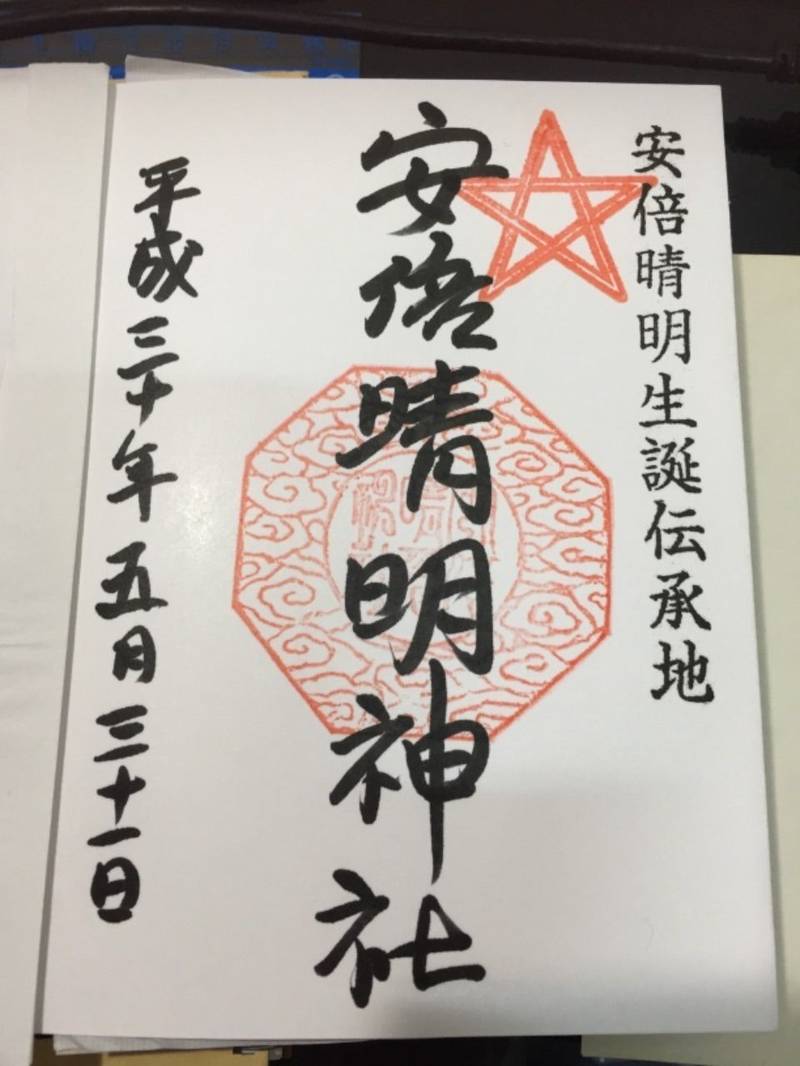 安倍晴明生誕伝承地
安倍晴明神社
平成三十年五月三十一日